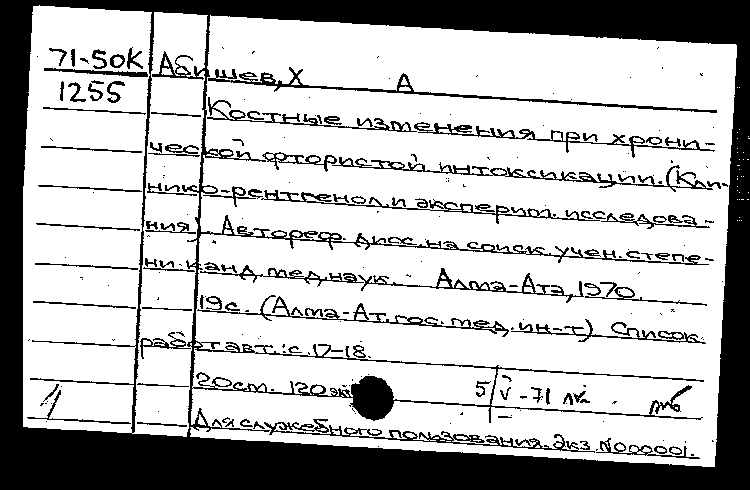 71-50К Абишев, Х А
1255
Костные изменения при хрони-
ческой фтористой интоксикации. (Кли-
нико-рентгенол. и эксперим. исследова-
ния). Автореф. дисс. на соиск. учен. степе-
ни канд. мед. наук. Алма-Ата, 1970.
19с. (Алма-Ат. гос. мед. ин-т) Список
работ авт.: с. 17-18.
20см. 120 эк
5/V-71
1
Для служебного пользования. Экз. N000001.